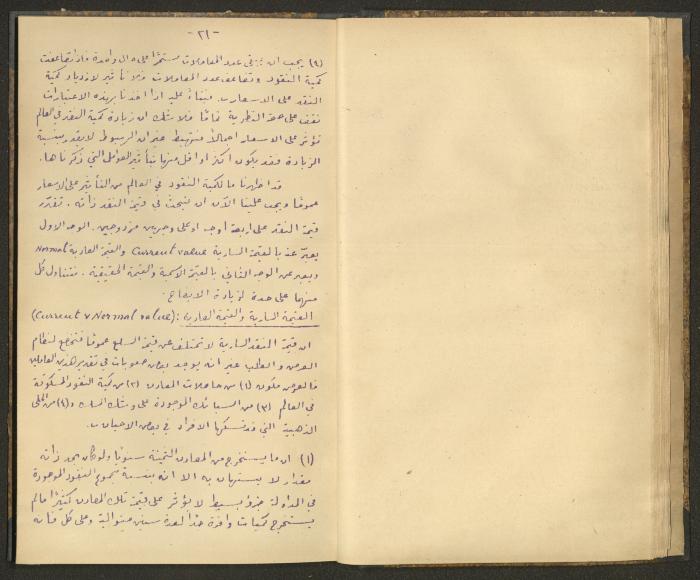 -٢١-
(٩) يجب ان يبقى عدد المعاملات مستمرًا على حال واحدة فاذا تضاعفت
كمية النقود وتضاعف عدد المعاملات فلا تأثير لازدياد كمية
النقد على الاسعار. فبناءً عليه اذا اخذنا بهذه الاعتبارات
نقف على صحة النظرية تمامًا فلا شك ان زيادة كمية النقد في العالم
تؤثر على الاسعار اجمالًا فتهبط غير ان الهبوط لا يقدر بنسبة
الزيادة فقد يكون اكثر او اقل منها بتأثير العوامل التي ذكرناها.
قد اظهرنا ما لكمية النقود في العالم من التأثير على الاسعار
عمومًا ويجب علينا الآن ان نبحث في قيمة النقد ذاته. تقدّر
قيمة النقد على اربعة اوجه او على وجهين مزدوجين. الوجه الاول
يعبّر عنه بالقيمة السارية Current value والقيمة العادية Normal
ويعبر عن الوجه الثاني بالقيمة الاسمية والقيمة الحقيقية. فنتناول كل
منهما على حدة لزيادة الايضاح.
القيمة السارية والقيمة العادية: (Current & Normal value)
ان قيمة النقد السارية لا تختلف عن قيمة السلع عمومًا فتخضع لنظام
العرض والطلب غير انه يوجد بعض صعوبات في تقدير هذين العاملين
فالعرض مكون (١) من حاصلات المعادن (٢) من كمية النقود المسكوكة
في العالم (٣) من السبائك الموجودة على وشك السك و(٤) من الحلي
الذهبية التي قد تسكها الافراد في بعض الاحيان.
(١) ان ما يستخرج من المعادن الثمينة سنويًا ولو كان بحد ذاته
مقدار لا يستهان به الا انه بنسبة مجموع النقود الموجودة
في التداولة جزء بسيط لا يؤثر على قيمة تلك المعادن كثيرًا ما لم
يستخرج كميات وافرة جدًا لعدة سنين متوالية وعلى كل فانه